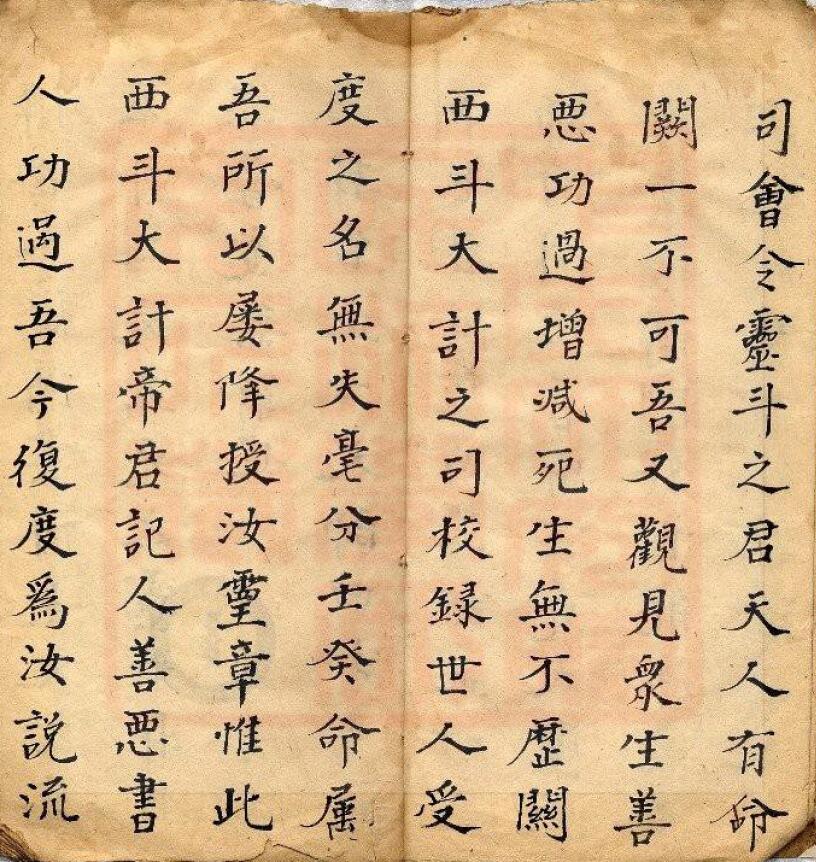 司會令靈斗之君天人有命
闕一不可吾又觀見衆生善
悪功過增減死生無不歷關
西斗大計之司校録世人受
度之名無失毫分壬癸命属
吾所以屡降授汝靈章惟此
西斗大計帝君記人善悪書
人功過吾今復度爲汝說流